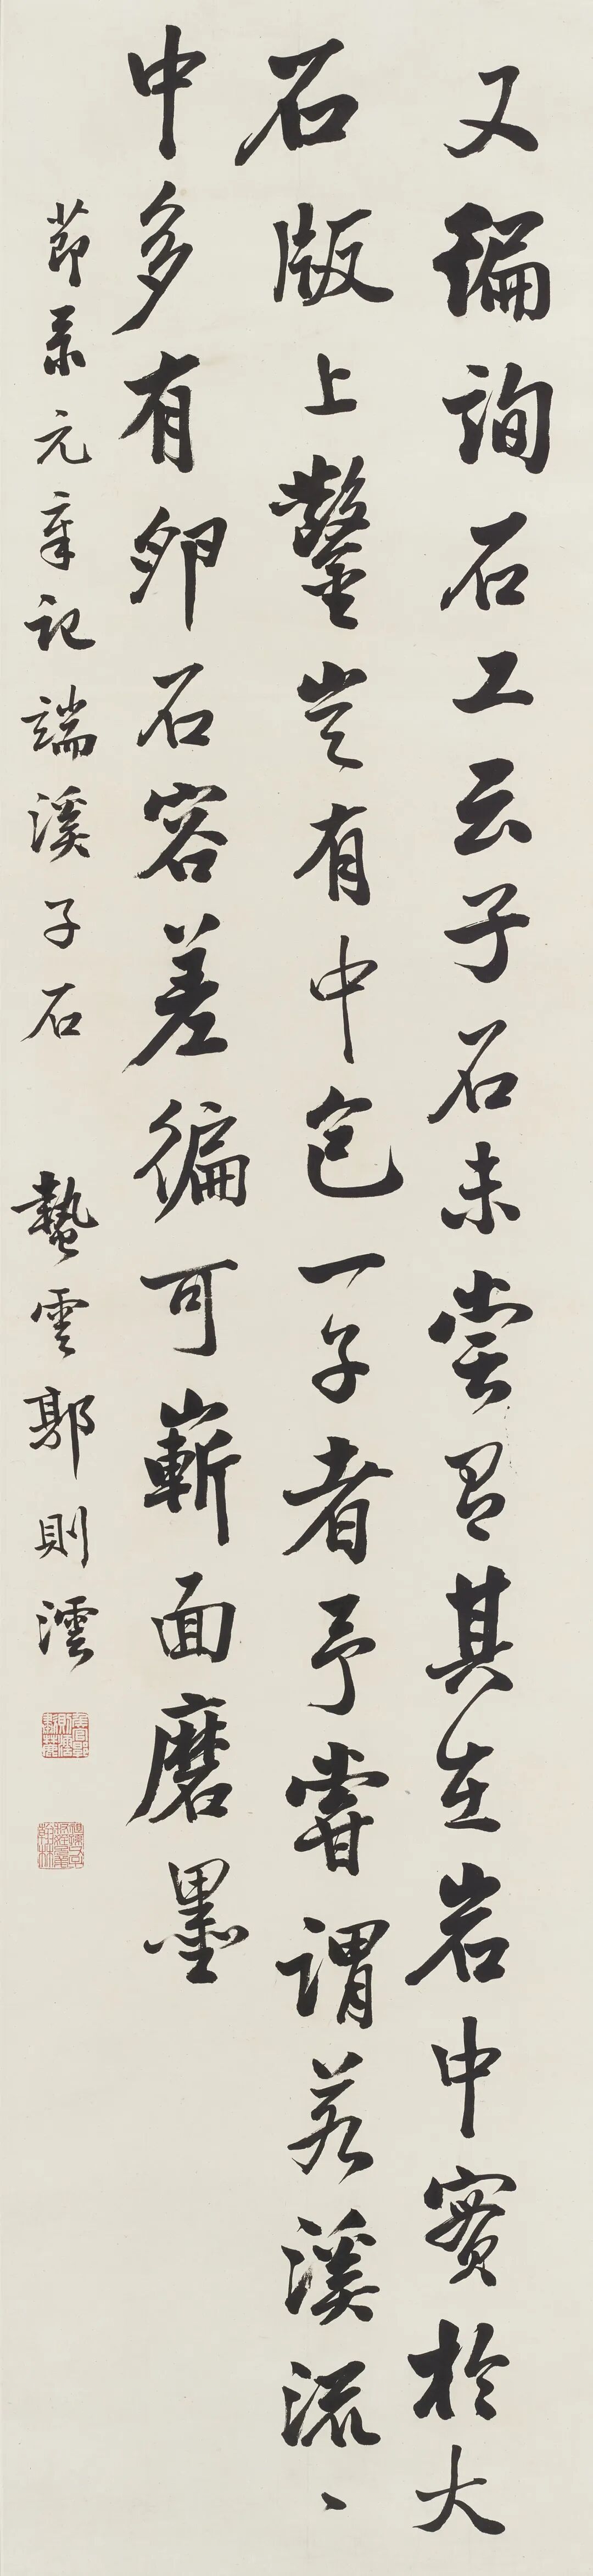 又徧詢石工云子石未嘗有其在岩中實於大
石版上鑿豈有中包一子者予嘗謂若溪流丶
中多有卵石容差徧可嶄面磨墨
節录元章記端溪子石 蟄雲郭則澐